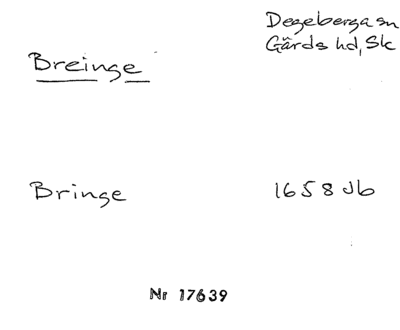 Degeberga sn
Gärds hd, Sk
Breinge
Bringe 1658 Jb
Nr 17639